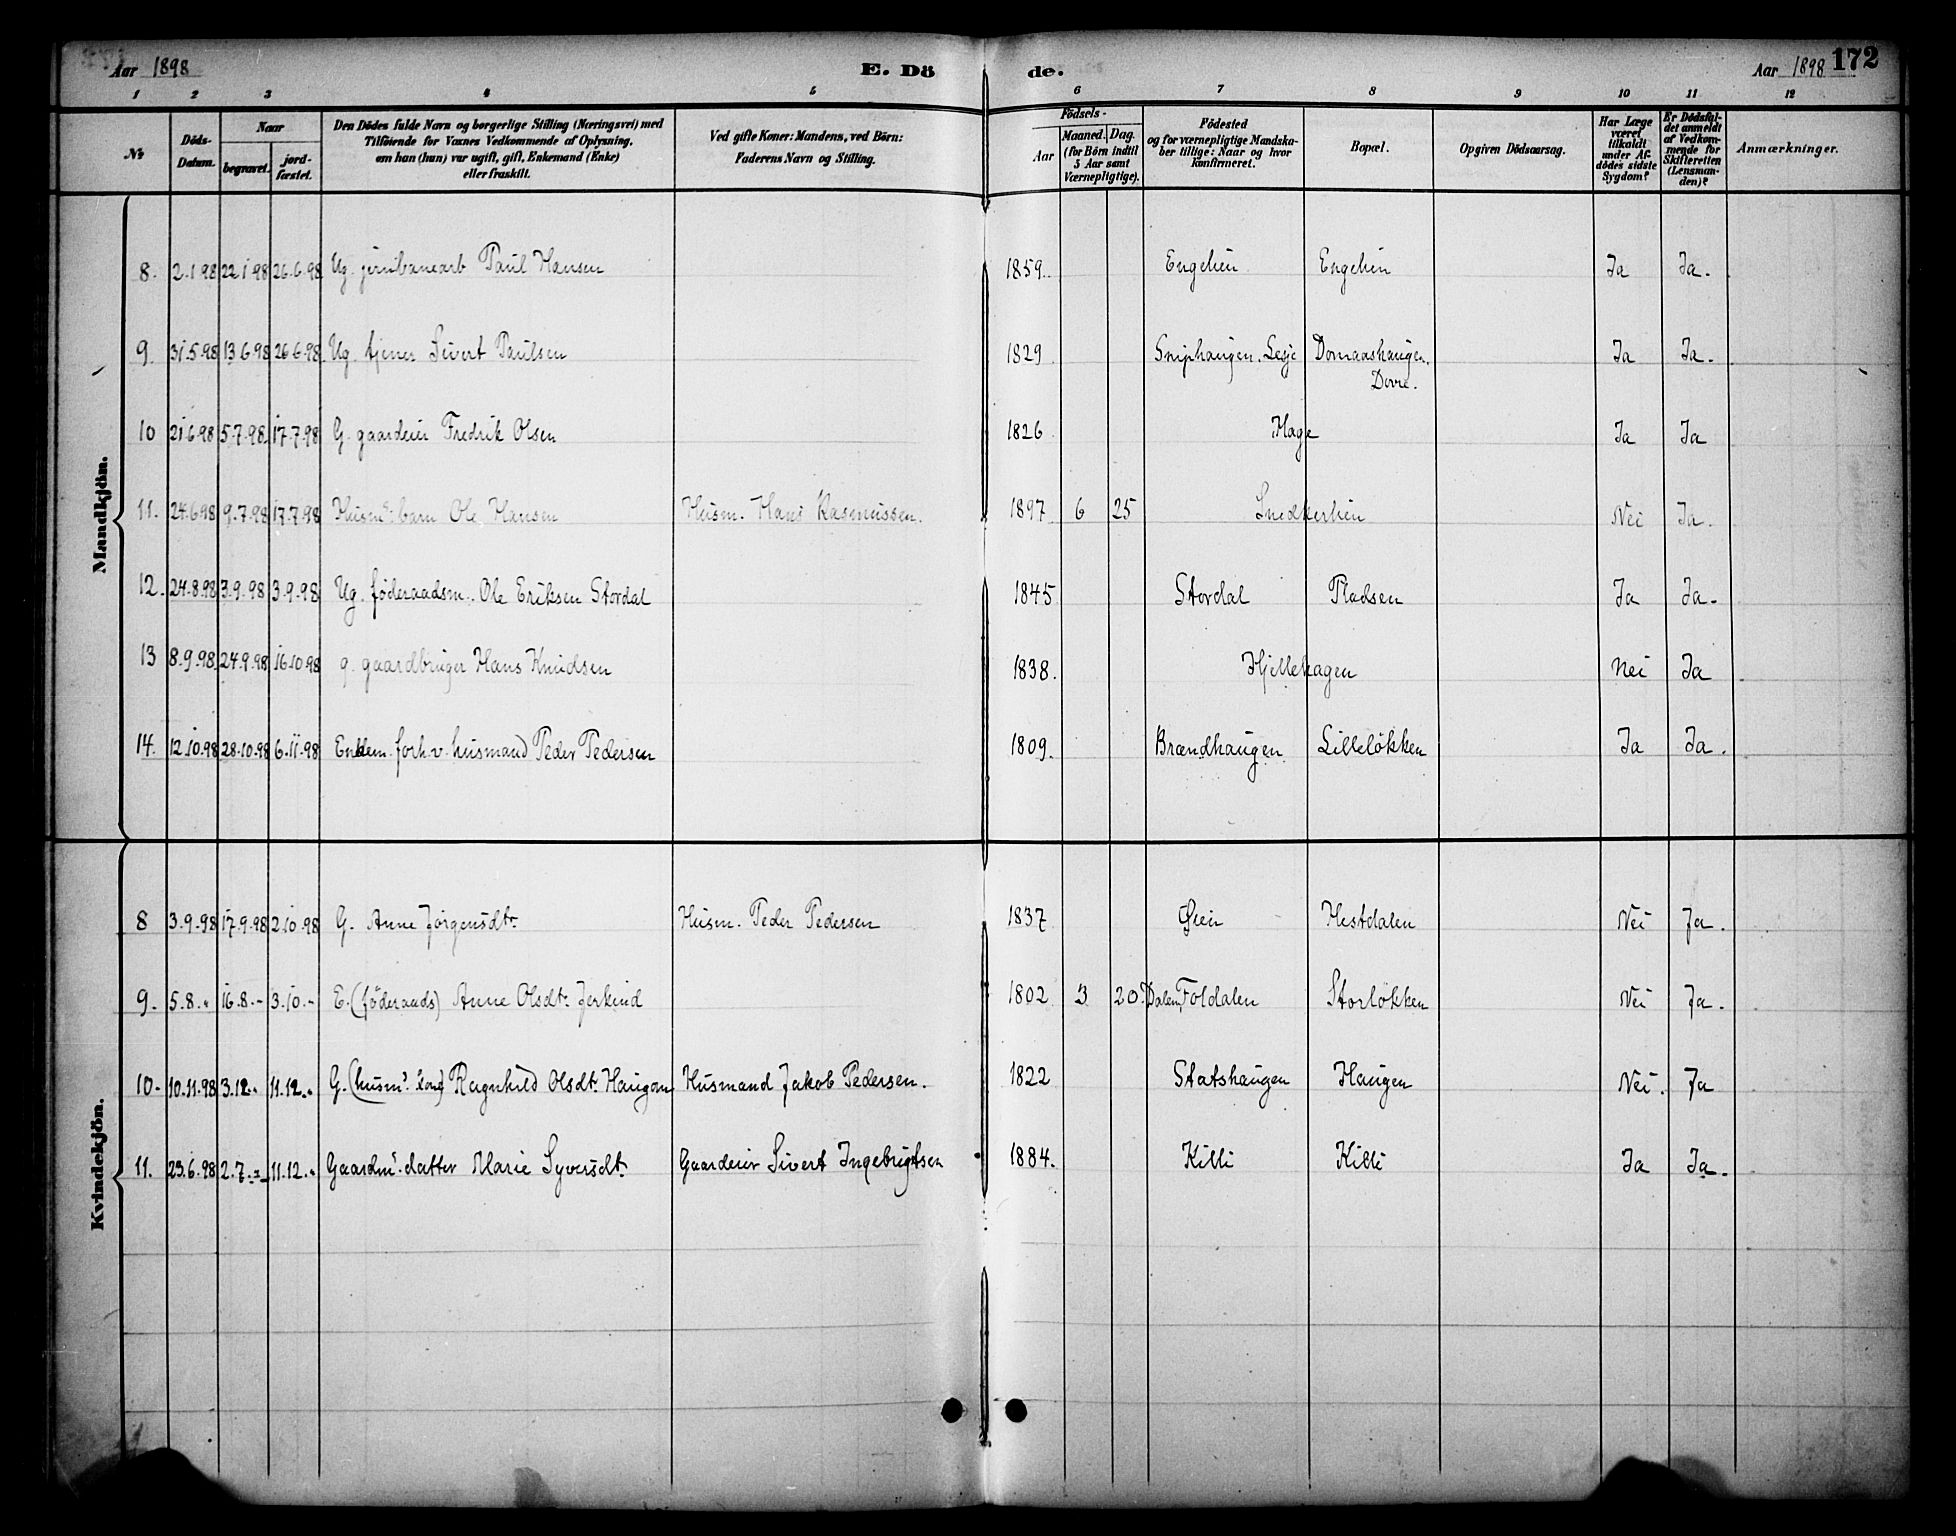 Aar 1898 E. Dö de. Aar 1898 172
1 2 3 4 5 6 7 8 9 10 11 12
No
Döds-Datum.
Naar
begravet.
jord-fæstet.
Den Dödes fulde Navn og borgerlige Stilling (Næringsvei) med
Tilföiende for Voxnes Vedkommende af Oplysning,
om han (hun) var ugift, gift, Enkemand (Enke)
eller fraskilt.
Ved gifte Koner: Mandens, ved Börn:
Faderens Navn og Stilling.
Födsels-
Aar
Maaned. Dag.
(for Börn indtil
5 Aar samt
Værnepligtige).
Födested
og for værnepligtige Mandska-
ber tillige: Naar og hvor
konfirmeret.
Bopæl.
Opgiven Dödsaarsag.
Har Læge
været
tilkaldt
under Af-
dödes sidste
Sygdom?
Er Dödsfal-
det anmeldt
af Vedkom-
mende for
Skifteretten
(Lensman-
den)?
Anmærkninger.
Mandkjön.
8. 2.1.98 22.1.98 26.6.98 Ug. jernbanearb Paul Hansen 1859. Engelien Engelien Ja Ja.
9. 31.5.98 13.6.98 26.6.98. Ug. tjener Sivert Paulsen 1829 Sniphaugen. Lesje Domaashaugen. Ja Ja.
Dovre.
10 21.6.98 5.7.98. 17.7.98 G. gaardeier Fredrik Olsen 1826 Hage Ja Ja
11. 24.6.98 9.7.98 17.7.98 Husms. barn Ole Hansen Husm. Hans Rasmussen. 1897 6 25 Snedkerlien Nei Ja.
12. 24.8.98 3.9.98 3.9.98 Ug. föderaadsm. Ole Eriksen Stordal 1845 Stordal Pladsen Ja Ja.
13 8.9.98 24.9.98 16.10.98 g. gaardbruger Hans Knudsen 1838. Hjellehagen Nei Ja
14. 12.10.98 28.10.98 6.11.98 Enkem. forh.v. husmand Peder Pedersen 1809. Brændhaugen Lilleløkken Ja Ja.
Kvindekjön.
8 3.9.98 17.9.98 2.10.98 G. Anne Jörgensdtr. Husm. Peder Pedersen 1837 Øien Hestdalen Nei Ja.
9. 5.8. " 16.8. - 3.10. - E. (föderaads) Anne Olsdtr. Jerkind 1802 3 20. Dalen, Foldalen Storløkken Nei Ja.
10. 10.11.98 3.12. " 11.12. " G. (husms. kone) Ragnhild Olsdtr. Haugen Husmand Jakob Pedersen. 1822 Statshaugen Haugen Nei. Ja
11. 23.6.98 2.7. " 11.12. " Gaardms. datter Marie Syversdtr. Gaardeier Sivert Ingebrigtsen 1884. Killi Killi Ja Ja.